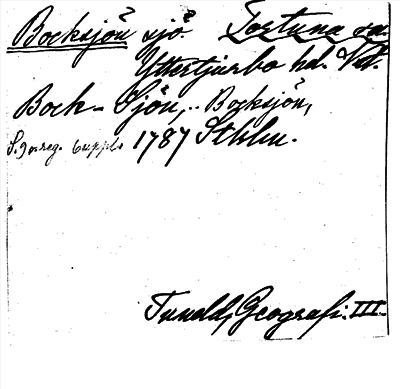 Bocksjön sjö. Tortuna sn.
Yttertjurbo hd. Vstm.
Bock-Sjön, Bocksjön,
S. 9 o. reg. 6 uppl. 1787 Sthlm.
Tuneld, Geografi. III.